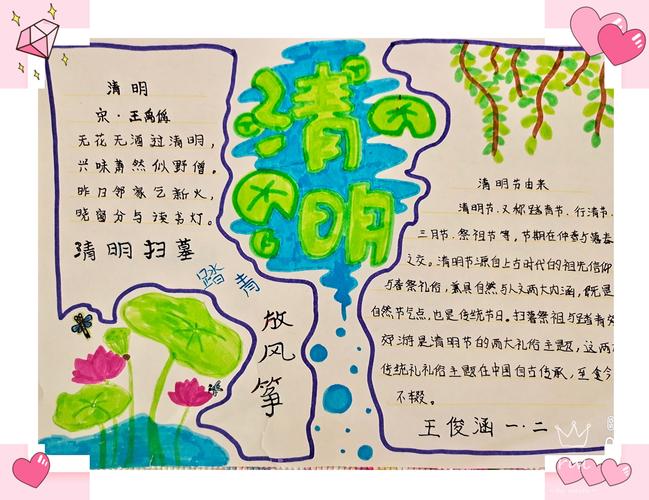 清明
宋·王禹偁
无花无酒过清明，
兴味萧然似野僧。
昨日邻家乞新火，
晓窗分与读书灯。
清明扫墓
踏青
放风筝
清明
清明节由来
清明节.又称踏青节.行清节.
三月节.祭祖节等，节期在仲春与暮春
之交。清明节源自上古时代的祖先信仰
与春祭礼俗，兼具自然与人文两大内涵，既是
自然节气点，也是传统节日。扫墓祭祖与踏青
郊游是清明节的两大礼俗主题，这两
传统礼礼俗主题在中国自古传承，至今
不辍。
王俊涵 一·二